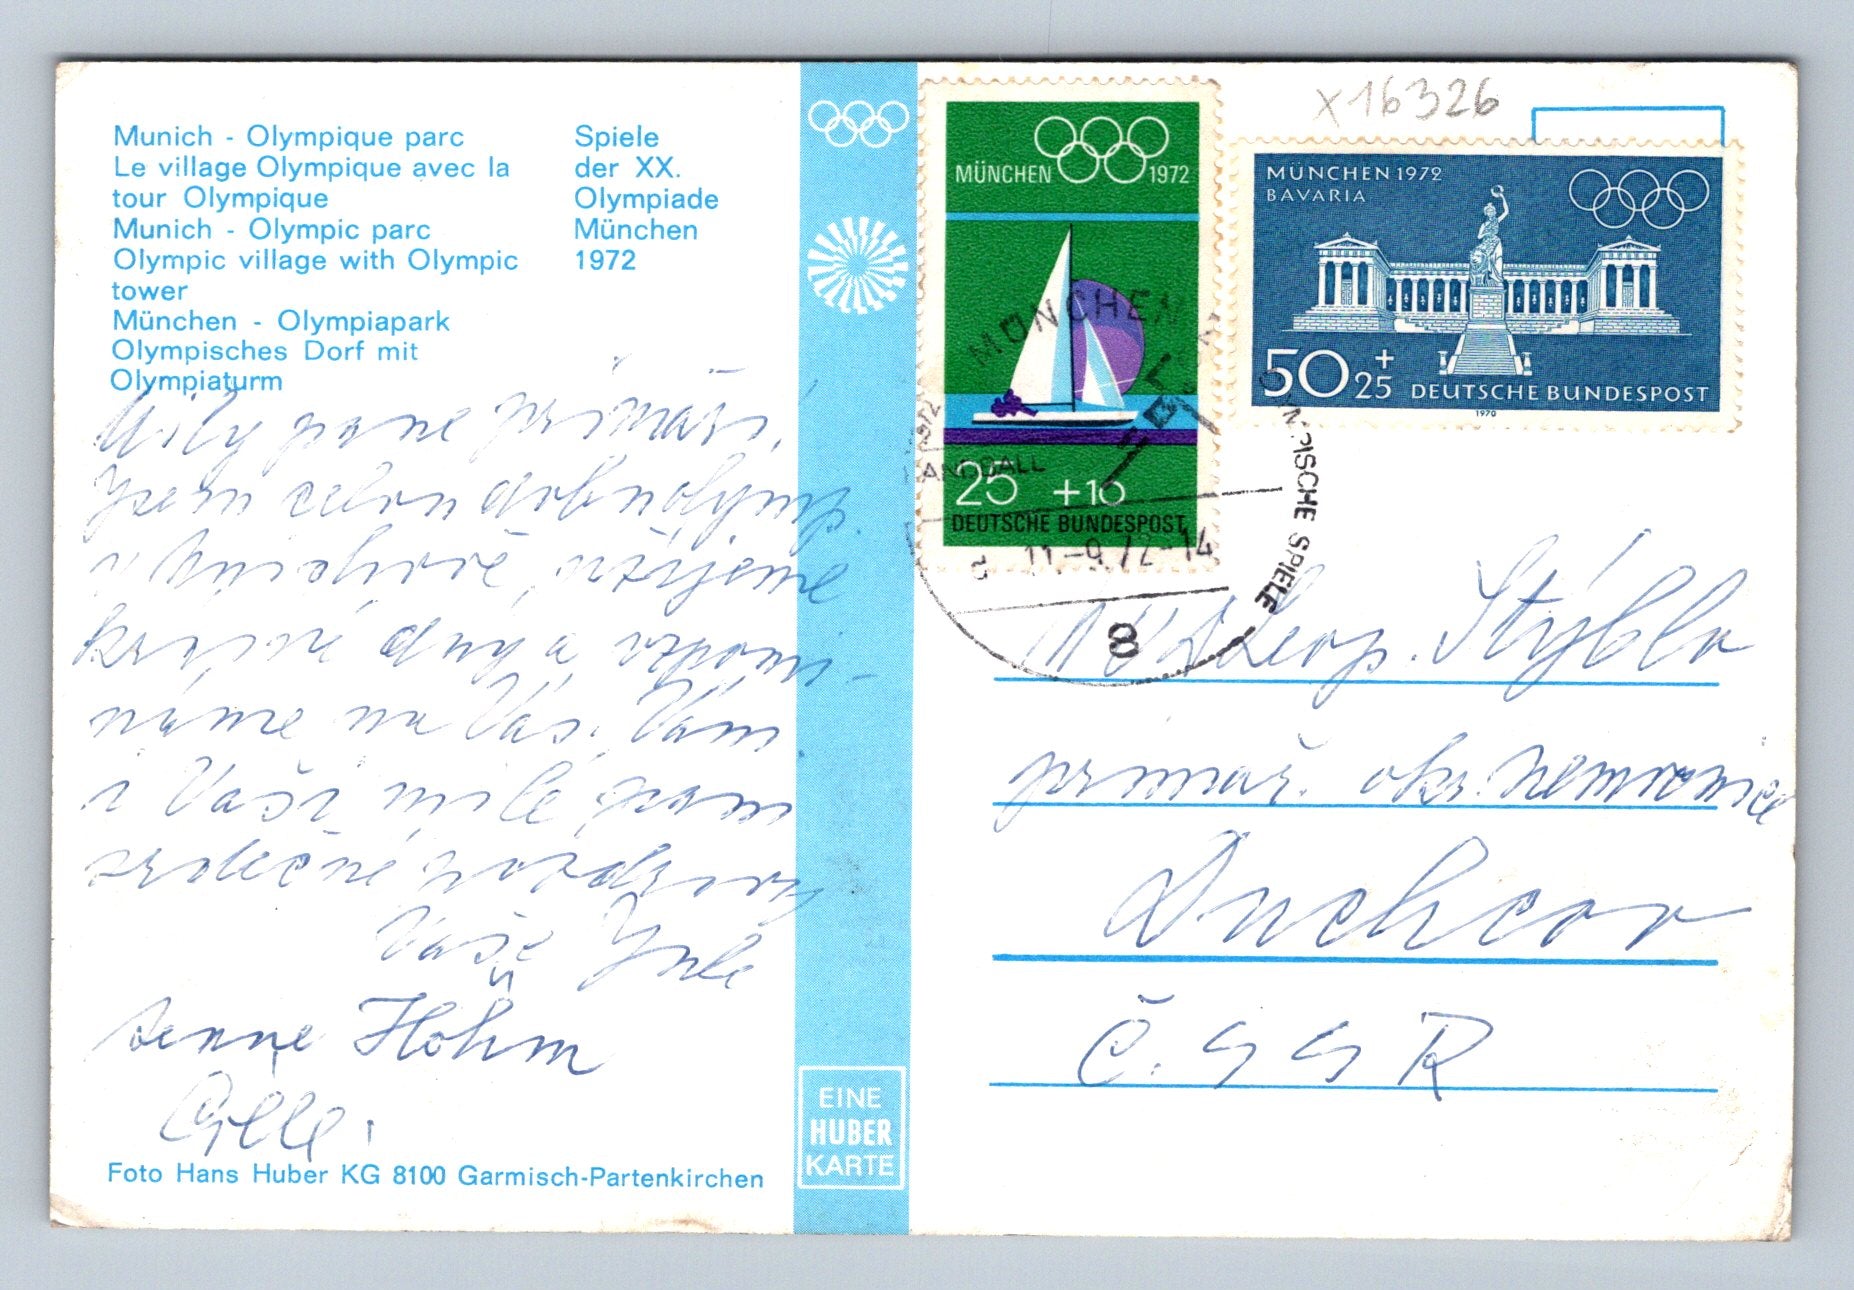 Munich - Olympique parc
Le village Olympique avec la
tour Olympique
Munich - Olympic parc
Olympic village with Olympic
tower
München - Olympiapark
Olympisches Dorf mit
Olympiaturm
Spiele
der XX.
Olympiade
München
1972
Milý pane primáři,
jsem celou dobu olymp.
v Mnichově, užijeme
krásné dny a vzpomí-
náme na Vás. Vám
i Vaší milé paní
srdečné pozdravy
Vaše
Foto Hans Huber KG 8100 Garmisch-Partenkirchen
EINE
HUBER
KARTE
MÜNCHEN 1972
25 + 10
DEUTSCHE BUNDESPOST
x16326
MÜNCHEN 1972
BAVARIA
50 + 25 DEUTSCHE BUNDESPOST
1970
MÜNCHEN
OLYMPISCHE SPIELE
HANDBALL
11-9 72-14
8
MUDr Leop. Stýblo
primář. okr. nemocnice
Duchcov
Č.SSR